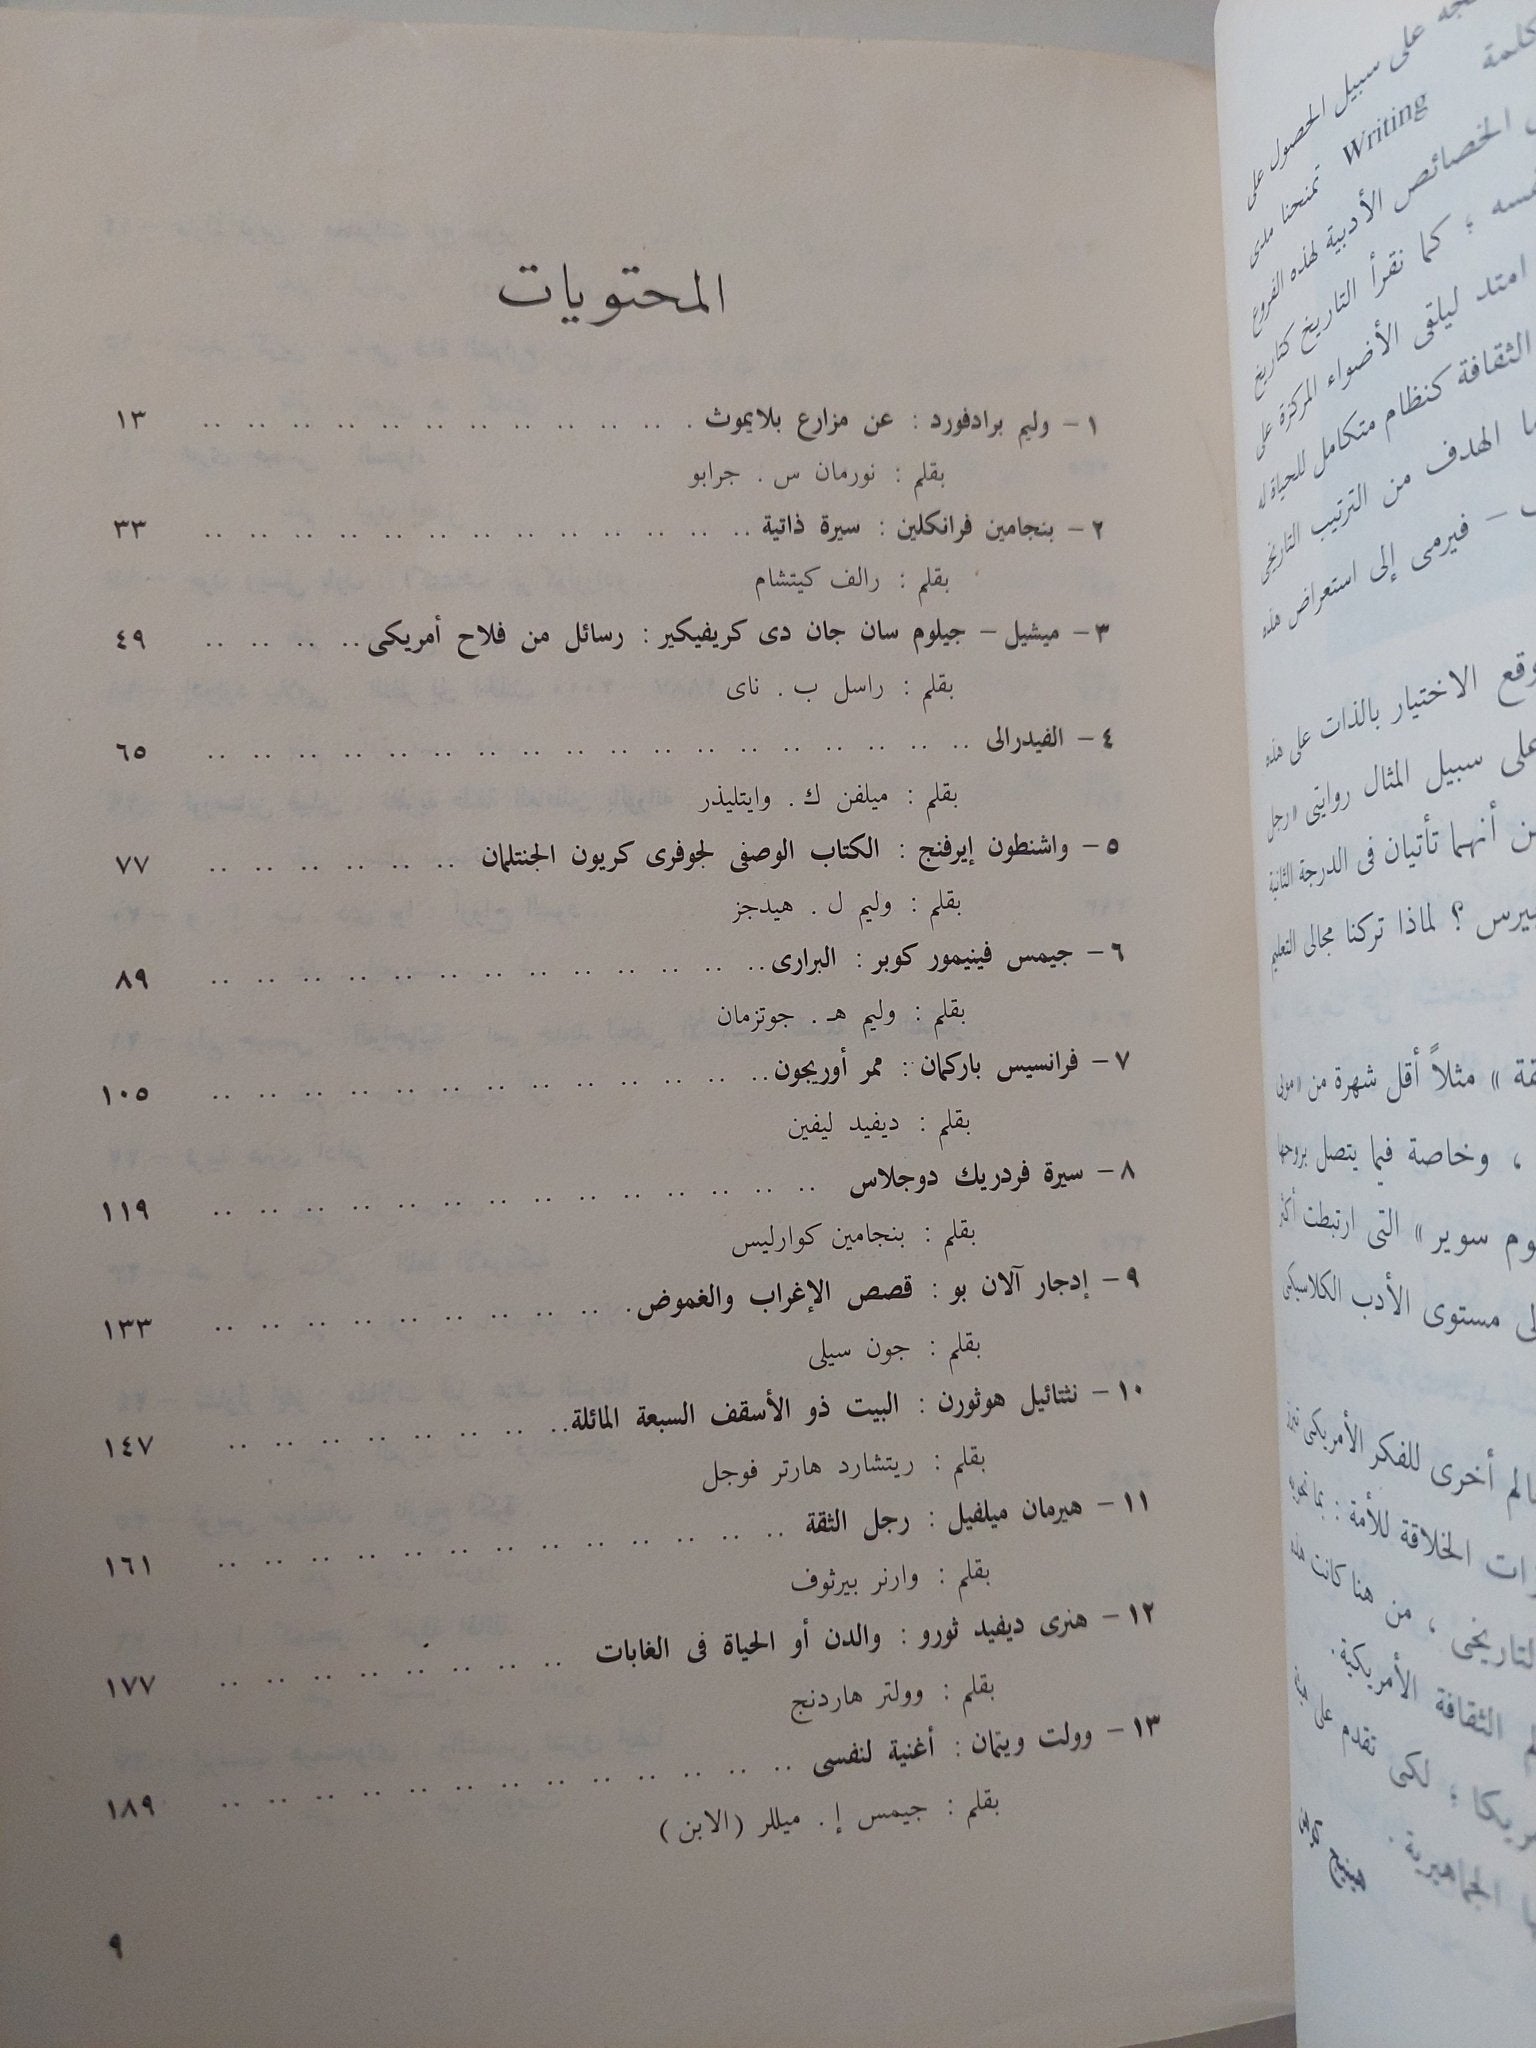 المحتويات
١ – وليم برادفورد : عن مزارع بلايموث . .. .. .. .. .. .. .. .. .. .. .. ١٣
بقلم : نورمان س . جرابو
٢ – بنجامين فرانكلين : سيرة ذاتية .. .. .. .. .. .. .. .. .. .. .. .. .. ٣٣
بقلم : رالف كيتشام
٣ – ميشيل – جيلوم سان جان دى كريفيكير : رسائل من فلاح أمريكى .. .. .. .. ٤٩
بقلم : راسل ب . ناى
٤ – الفيدرالى .. .. .. .. .. .. .. .. .. .. .. .. .. .. .. .. .. .. ٦٥
بقلم : ميلفن ك . وايتليذر
٥ – واشنطون إيرفنج : الكتاب الوصفى لجوفرى كريون الجنتلمان .. .. .. .. .. .. ٧٧
بقلم : وليم ل . هيدجز
٦ – جيمس فينيمور كوبر : البرارى .. .. .. .. .. .. .. .. .. .. .. .. .. ٨٩
بقلم : وليم هـ . جوتزمان
٧ – فرانسيس باركمان : ممر أوريجون .. .. .. .. .. .. .. .. .. .. .. .. .. ١٠٥
بقلم : ديفيد ليفين
٨ – سيرة فردريك دوجلاس .. .. .. .. .. .. .. .. .. .. .. .. .. .. ١١٩
بقلم : بنجامين كوارليس
٩ – إدجار آلان بو : قصص الإغراب والغموض . .. .. .. .. .. .. .. .. .. ١٣٣
بقلم : جون سيلى
١٠ – نثتائيل هوثورن : البيت ذو الأسقف السبعة المائلة .. .. .. .. .. .. .. .. ١٤٧
بقلم : ريتشارد هارتر فوجل
١١ – هيرمان ميلفيل : رجل الثقة .. .. .. .. .. .. .. .. .. .. .. .. .. ١٦١
بقلم : وارنر بيرثوف
١٢ – هنرى ديفيد ثورو : والدن أو الحياة فى الغابات .. .. .. .. .. .. .. .. ١٧٧
بقلم : وولتر هاردنج
١٣ – وولت ويتمان : أغنية لنفسى .. .. .. .. .. .. .. .. .. .. .. .. .. ١٨٩
بقلم : جيمس إ . ميللر ( الابن )
٩
على سبيل الحصول على
كلمة
Writing تمنحنا مدى
الخصائص الأدبية لهذه الفروع
؛ كما نقرأ التاريخ كتاريخ
امتد ليلقى الأضواء المركزة على
الثقافة كنظام متكامل للحياة له
الهدف من الترتيب التاريخى
– فيرمى إلى استعراض هذه
وقع الاختيار بالذات على هذه
على سبيل المثال روايتى « رجل
أنهما تأتيان فى الدرجة الثانية
؟ لماذا تركنا مجالى التعليم
» مثلاً أقل شهرة من « موبى
، وخاصة فيما يتصل بروحها
سوير » التى ارتبطت أكثر
مستوى الأدب الكلاسيكى
أخرى للفكر الأمريكى
الخلاقة للأمة :
، من هنا كانت هذه
الثقافة الأمريكية .
؛ لكى تقدم على